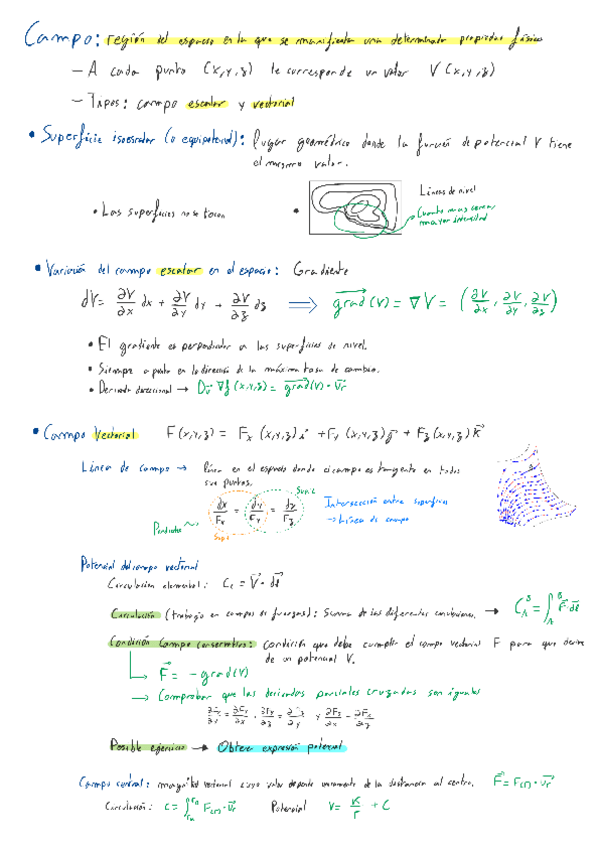 Campo: región del espacio en la que se manifiesta una determinada propiedad física
– A cada punto (x,y,z) le corresponde un valor V(x,y,z)
– Tipos: campo escalar y vectorial
• Superficie isoescalar (o equipotencial): Lugar geométrico donde la función de potencial V tiene
el mismo valor.
• Las superficies no se tocan
•
Líneas de nivel
Cuanto mas cerca
mayor intensidad
• Variación del campo escalar en el espacio: Gradiente
dV = ∂V/∂x dx + ∂V/∂y dy + ∂V/∂z dz ⟹ grad(V) = ∇V = (∂V/∂x, ∂V/∂y, ∂V/∂z)
• El gradiente es perpendicular a las superficies de nivel.
• Siempre apunta en la dirección de la máxima tasa de cambio.
• Derivada direccional → (x,y,z) = grad(V) ·
• Campo Vectorial F(x,y,z) = Fx (x,y,z) i + Fy (x,y,z) j + Fz (x,y,z) k
Línea de campo → línea en el espacio donde el campo es tangente en todos
sus puntos.
Sup 2
dx/Fx = dy/Fy = dz/Fz
Intersección entre superficies
→ Línea de campo
Sup 1
Potencial del campo vectorial
Circulación elemental: · dl
Circulación (trabajo en campos de fuerzas): Suma de las diferentes circulaciones. → C = ∫ F · dl
Condición Campo conservativo: condición que debe cumplir el campo vectorial F para que derive
de un potencial V.
F = – grad(V)
→ Comprobar que las derivadas parciales cruzadas son iguales
Posible ejercicio → Obtener expresión potencial
Campo central: magnitud vectorial cuyo valor depende unicamente de la distancia al centro. F = F(r) ·
Circulación: C = ∫ F(r) · Potencial V = K/r + C